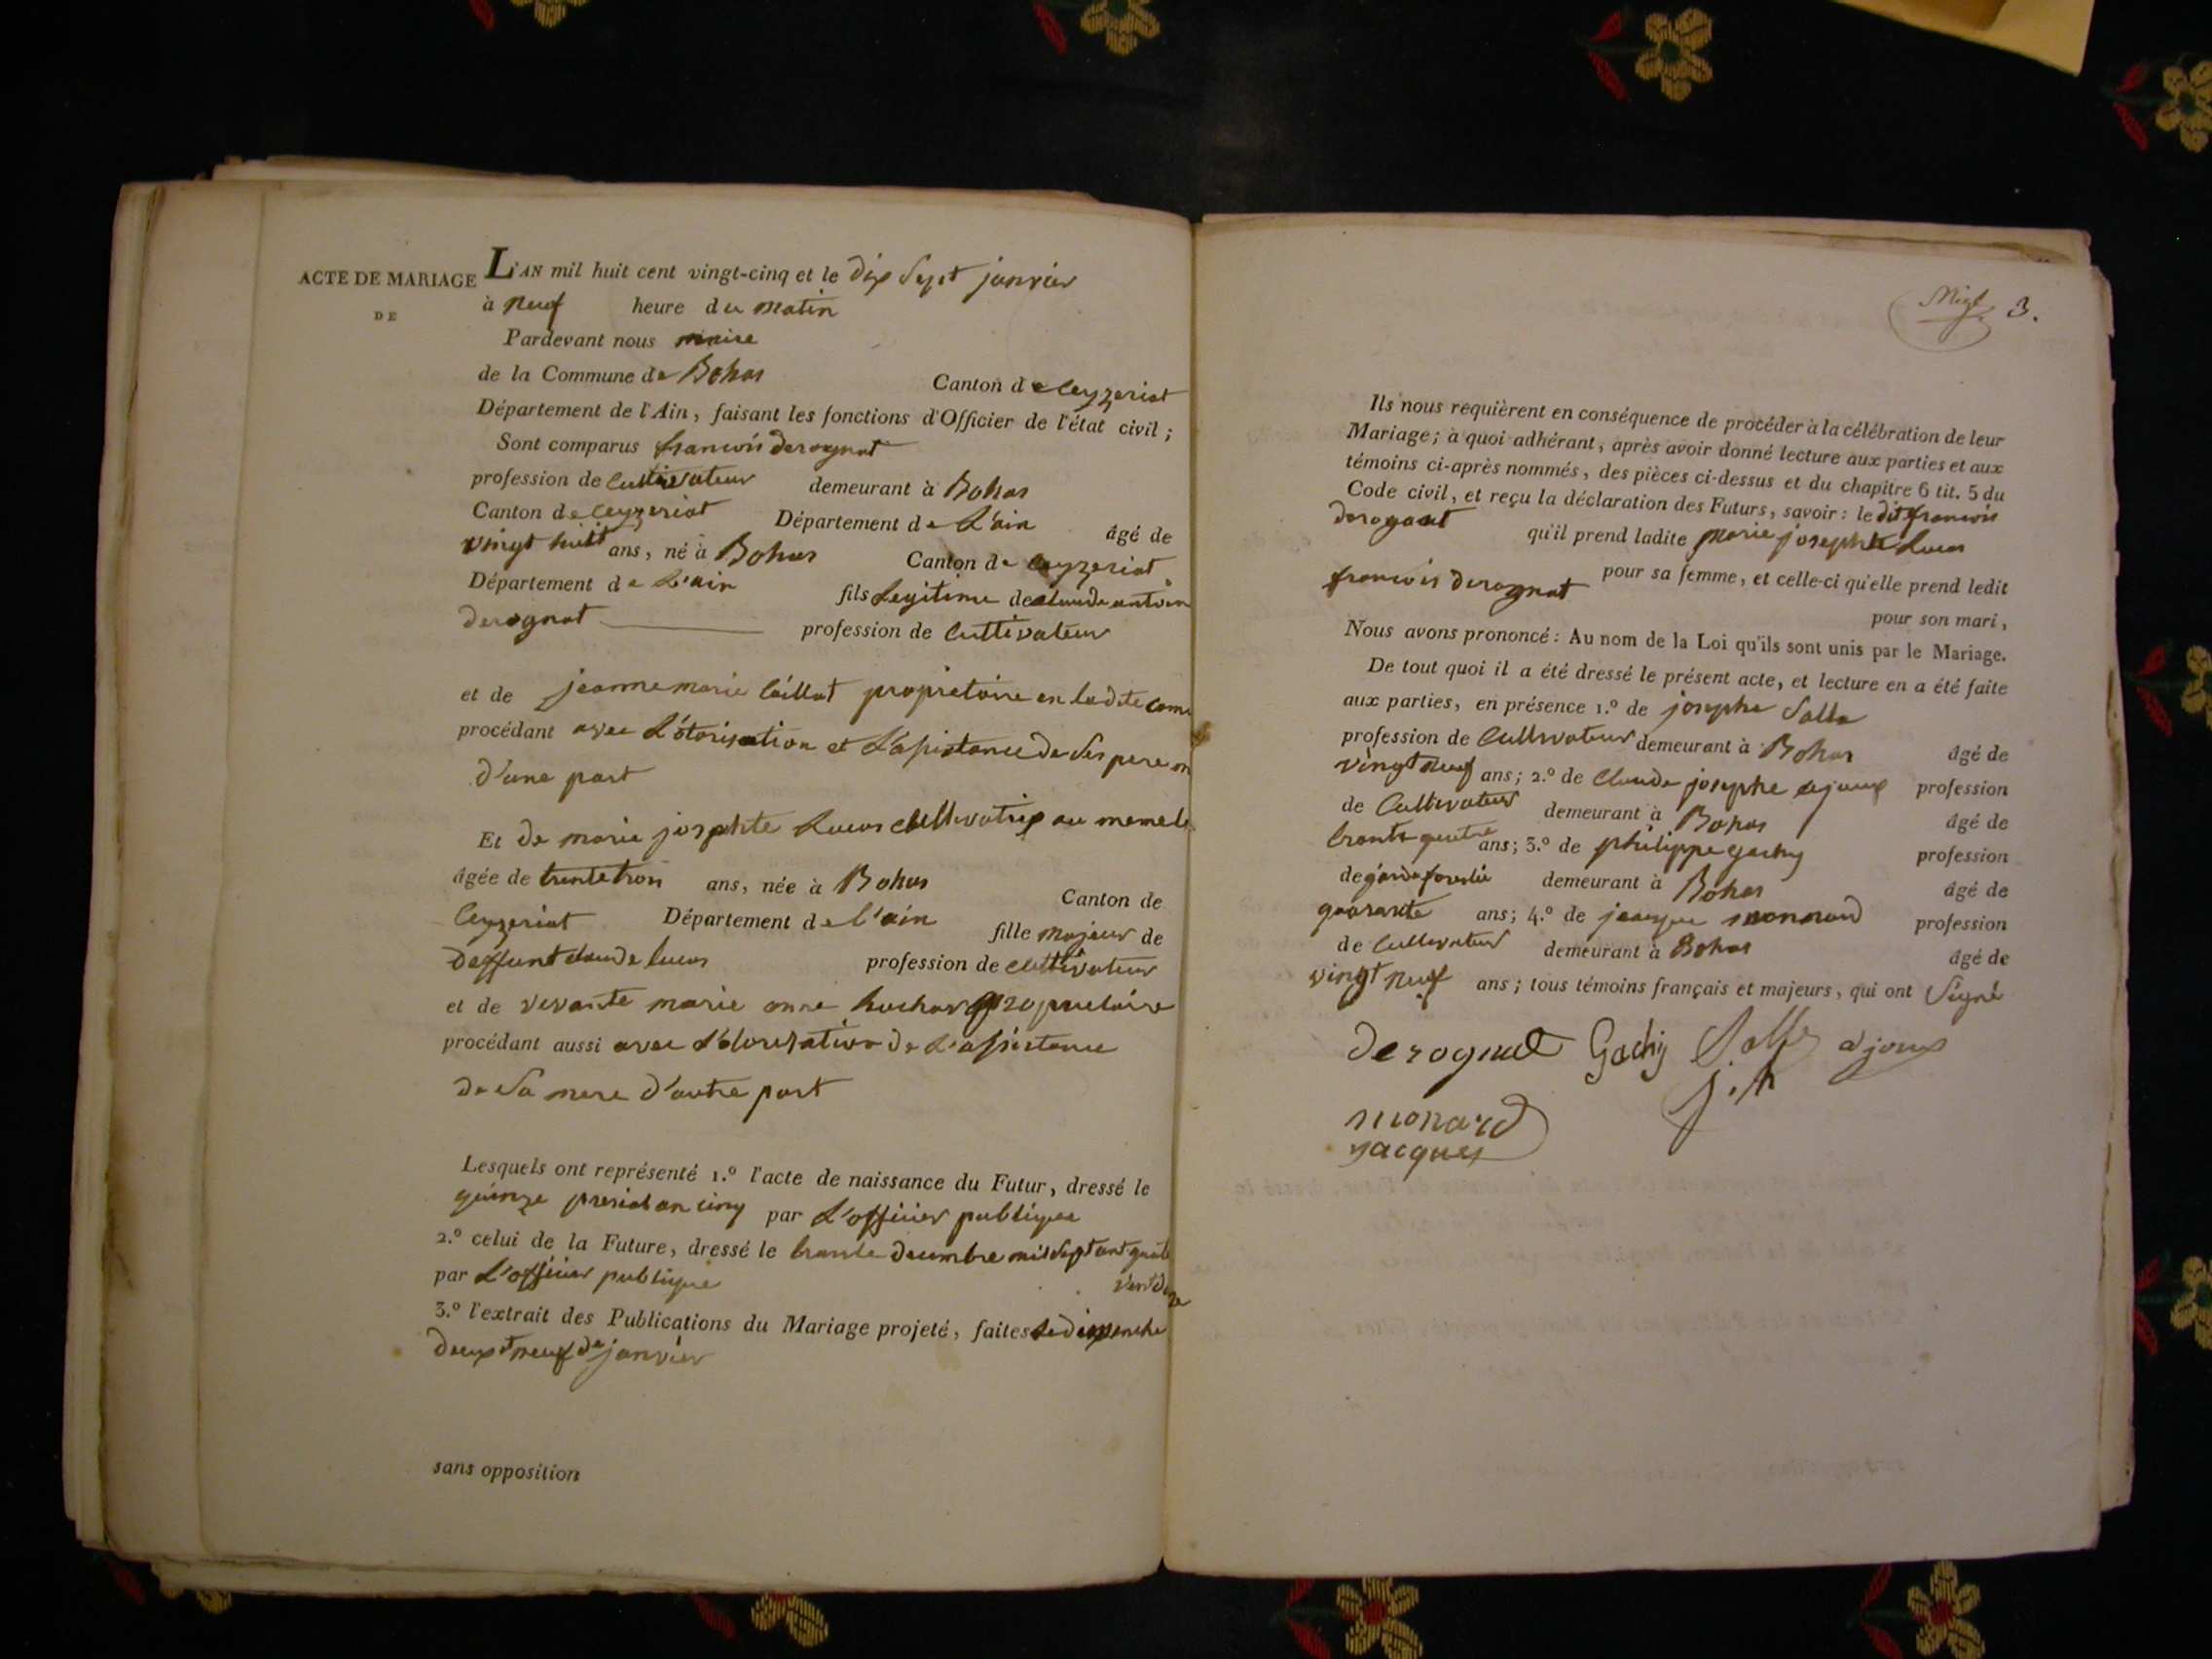 ACTE DE MARIAGE
DE
L'AN mil huit cent vingt-cinq et le dix Sept janvier
à neuf heure du matin
Pardevant nous maire
de la Commune de Bohas Canton de Ceyzeriat
Département de l'Ain, faisant les fonctions d'Officier de l'état civil;
Sont comparus francois derognat
profession de Cultivateur demeurant à Bohas
Canton de Ceyzeriat Département de L'ain âgé de
vingt huit ans, né à Bohas Canton de Ceyzeriat
Département de L'ain fils Legitime de claude antoin
derognat profession de Cultivateur
et de jeanne marie Caillat propriétaire en ladite Com
procédant avec L'otorisation et L'assistance de Ses pere
d'une part
Et de marie josephte Lucas cultivatrix au meme
âgée de trente trois ans, née à Bohas Canton de
Ceyzeriat Département de l'ain fille majeur de
deffunt claude lucas profession de cultivateur
et de vivante marie anne
procédant aussi avec L'otorisation de L'assistance
de Sa mere d'autre part
Lesquels ont représenté 1.º l'acte de naissance du Futur, dressé le
quinze prerial an cinq par L'officier publique
2.º celui de la Future, dressé le trante decembre mil Sept
par L'officier publique
3.º l'extrait des Publications du Mariage projeté, faites Le dimanche
deux et neuf de janvier
sans opposition
3.
Ils nous requièrent en conséquence de procéder à la célébration de leur
Mariage; à quoi adhérant, après avoir donné lecture aux parties et aux
témoins ci-après nommés, des pièces ci-dessus et du chapitre 6 tit. 5 du
Code civil, et reçu la déclaration des Futurs, savoir: le dit francois
derognat qu'il prend ladite marie josephte Lucas
pour sa femme, et celle-ci qu'elle prend ledit
francois derognat pour son mari,
Nous avons prononcé: Au nom de la Loi qu'ils sont unis par le Mariage.
De tout quoi il a été dressé le présent acte, et lecture en a été faite
aux parties, en présence 1.º de josephe Salla
profession de Cultivateur demeurant à Bohas âgé de
vingt neuf ans; 2.º de Claude josephe ajoux profession
de Cultivateur demeurant à Bohas âgé de
trante quatre ans; 3.º de philippe gachy profession
de garde forestie demeurant à Bohas âgé de
quarante ans; 4.º de jacque monnard profession
de Cultivateur demeurant à Bohas âgé de
vingt neuf ans; tous témoins français et majeurs, qui ont Signé
derognat Gachy Salla ajoux
j.h
monard
jacques